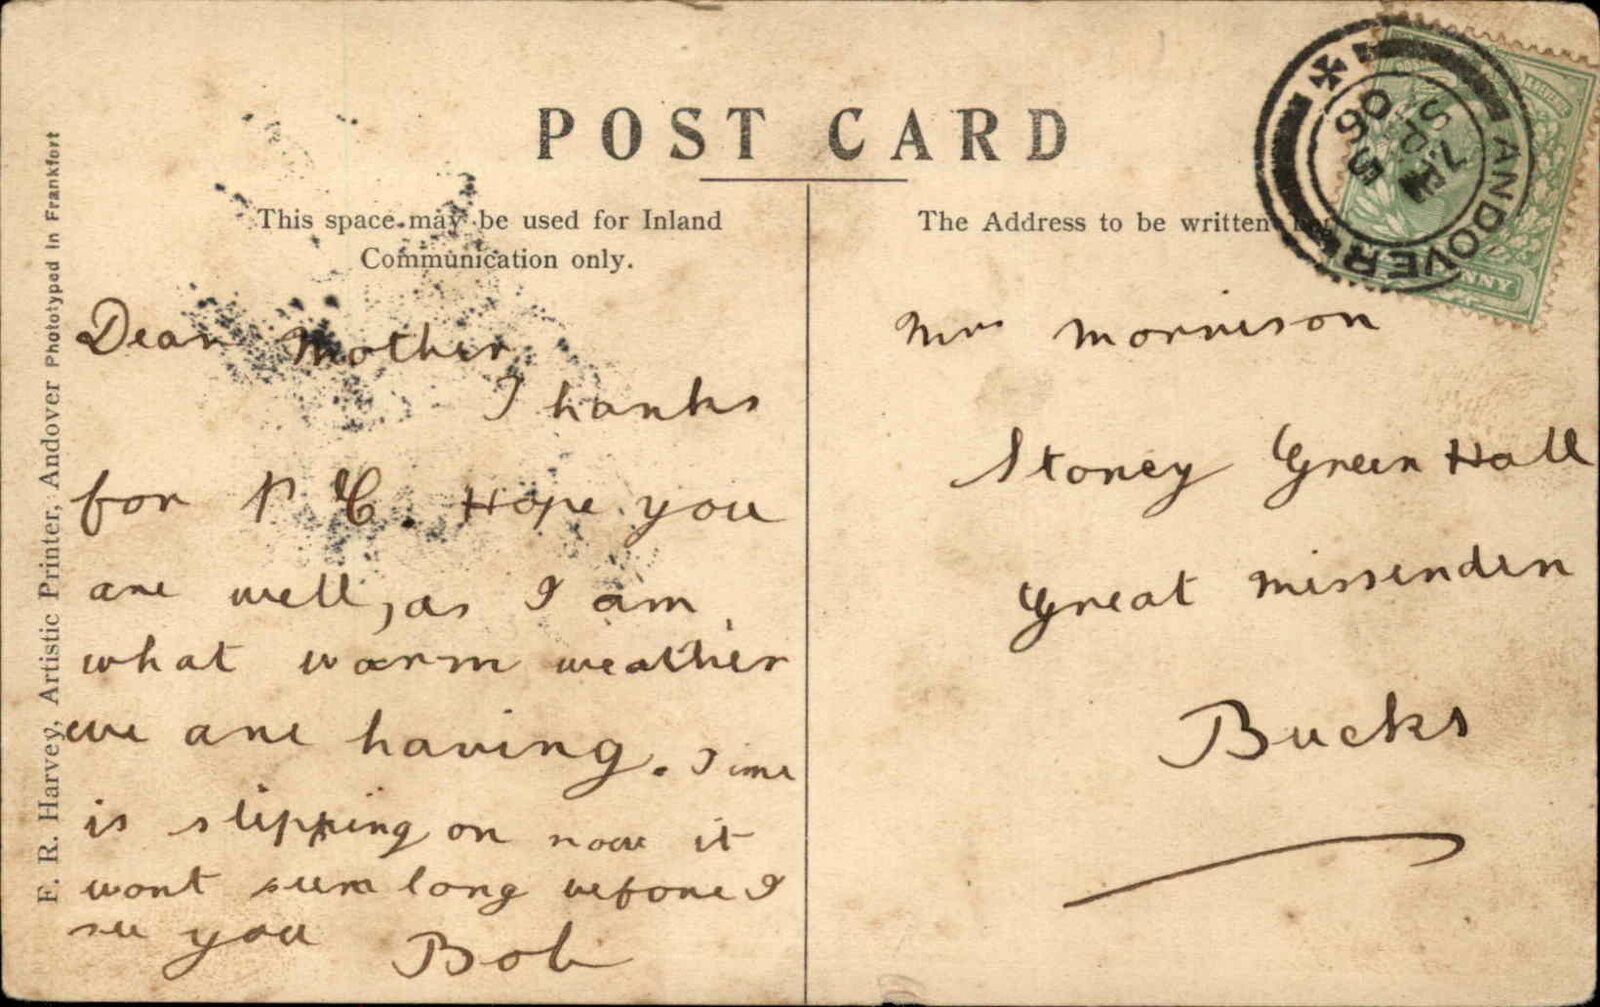 POST CARD
This space may be used for Inland
Communication only.
The Address to be written
Dear Mother
Thanks
for P C. Hope you
are well, as I am.
what warm weather
we are having. Time
is slipping on now it
wont seem long before I
see you Bob
Mrs Morrison
Stoney Green Hall
Great Missenden
Bucks
F. R. Harvey, Artistic Printer, Andover Photo typed in Frankfort
ANDOVER
SP 5
06
NNY